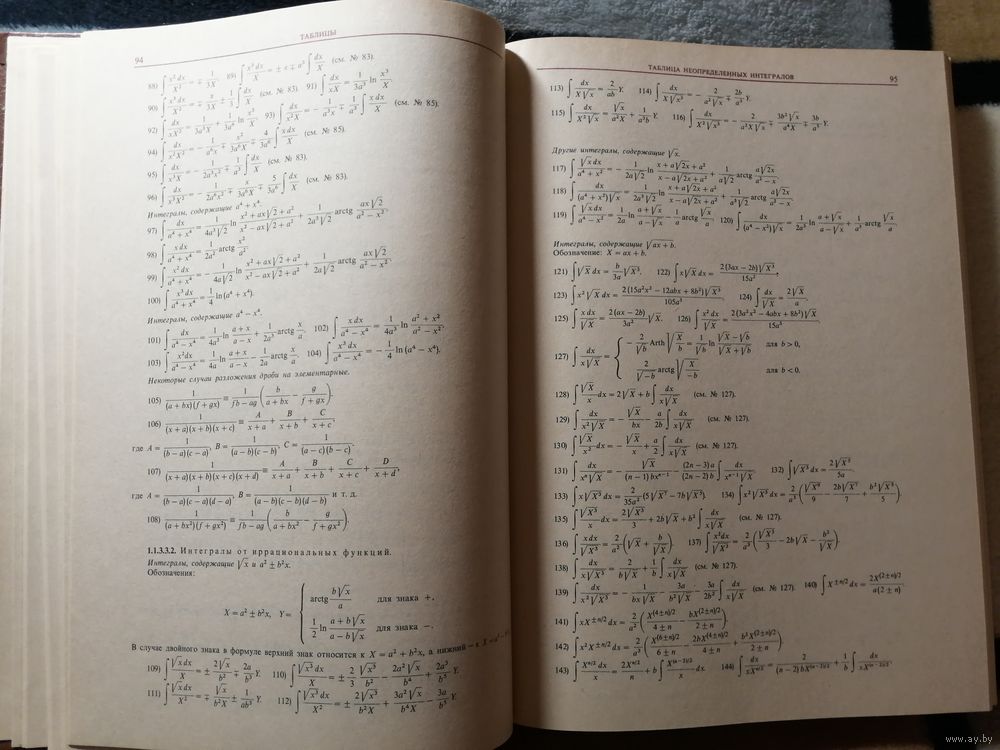 94
ТАБЛИЦЫ
88) ∫ x² dx / X² = ∓ 1/3X. 89) ∫ x³ dx / X = ± x ∓ a³ ∫ dx/X (см. № 83).
90) ∫ x³ dx / X² = ∓ x/3X ± 1/3 ∫ dx/X (см. № 83). 91) ∫ dx/xX = 1/3a³ ln x³/X.
92) ∫ dx/xX² = 1/3a³X + 1/3a⁶ ln x³/X. 93) ∫ dx/x²X = − 1/a³x ∓ 1/a³ ∫ x dx/X (см. № 85).
94) ∫ dx/x²X² = − 1/a⁶x ∓ x²/3a⁶X ∓ 4/3a⁶ ∫ x dx/X (см. № 85).
95) ∫ dx/x³X = − 1/2a³x² ∓ 1/a³ ∫ dx/X (см. № 83).
96) ∫ dx/x³X² = − 1/2a⁶x² ∓ x/3a⁶X ∓ 5/3a⁶ ∫ dx/X (см. № 83).
Интегралы, содержащие a⁴ + x⁴.
97) ∫ dx/(a⁴ + x⁴) = 1/4a³√2 ln (x² + ax√2 + a²)/(x² − ax√2 + a²) + 1/2a³√2 arctg ax√2/(a² − x²).
98) ∫ x dx/(a⁴ + x⁴) = 1/2a² arctg x²/a².
99) ∫ x² dx/(a⁴ + x⁴) = − 1/4a√2 ln (x² + ax√2 + a²)/(x² − ax√2 + a²) + 1/2a√2 arctg ax√2/(a² − x²).
100) ∫ x³ dx/(a⁴ + x⁴) = 1/4 ln (a⁴ + x⁴).
Интегралы, содержащие a⁴ − x⁴.
101) ∫ dx/(a⁴ − x⁴) = 1/4a³ ln (a + x)/(a − x) + 1/2a³ arctg x/a. 102) ∫ x dx/(a⁴ − x⁴) = 1/4a² ln (a² + x²)/(a² − x²).
103) ∫ x² dx/(a⁴ − x⁴) = 1/4a ln (a + x)/(a − x) − 1/2a arctg x/a. 104) ∫ x³ dx/(a⁴ − x⁴) = − 1/4 ln (a⁴ − x⁴).
Некоторые случаи разложения дроби на элементарные.
105) 1/(a + bx)(f + gx) ≡ 1/(fb − ag) (b/(a + bx) − g/(f + gx)).
106) 1/(x + a)(x + b)(x + c) ≡ A/(x + a) + B/(x + b) + C/(x + c),
где A = 1/(b − a)(c − a), B = 1/(a − b)(c − b), C = 1/(a − c)(b − c).
107) 1/(x + a)(x + b)(x + c)(x + d) ≡ A/(x + a) + B/(x + b) + C/(x + c) + D/(x + d),
где A = 1/(b − a)(c − a)(d − a), B = 1/(a − b)(c − b)(d − b) и т. д.
108) 1/(a + bx²)(f + gx²) ≡ 1/(fb − ag) (b/(a + bx²) − g/(f + gx²)).
1.1.3.3.2. Интегралы от иррациональных функций.
Интегралы, содержащие √x и a² ± b²x.
Обозначения:
X = a² ± b²x, Y = { arctg b√x/a для знака +,
1/2 ln (a + b√x)/(a − b√x) для знака −.
В случае двойного знака в формуле верхний знак относится к X = a² + b²x, а нижний — к X = a² −
109) ∫ √x dx/X = ± 2√x/b² ∓ 2a/b³ Y. 110) ∫ √x³ dx/X = ± 2/3 √x³/b² − 2a²√x/b⁴ + 2a³/b⁵ Y.
111) ∫ √x dx/X² = ∓ √x/b²X ± 1/ab³ Y. 112) ∫ √x³ dx/X² = ± 2√x³/b²X + 3a²√x/b⁴X − 3a/b⁵ Y.
ТАБЛИЦА НЕОПРЕДЕЛЕННЫХ ИНТЕГРАЛОВ
95
113) ∫ dx/X√x = 2/ab Y. 114) ∫ dx/X√x³ = − 2/a²√x ∓ 2b/a³ Y.
115) ∫ dx/X²√x = √x/a²X + 1/a³b Y. 116) ∫ dx/X²√x³ = − 2/a²X√x ∓ 3b²√x/a⁴X ∓ 3b/a⁵ Y.
Другие интегралы, содержащие √x.
117) ∫ √x dx/(a⁴ + x²) = − 1/2a√2 ln (x + a√2x + a²)/(x − a√2x + a²) + 1/a√2 arctg a√2x/(a² − x).
118) ∫ dx/(a⁴ + x²)√x = 1/2a³√2 ln (x + a√2x + a²)/(x − a√2x + a²) + 1/a³√2 arctg a√2x/(a² − x).
119) ∫ √x dx/(a⁴ − x²) = 1/2a ln (a + √x)/(a − √x) − 1/a arctg √x/a. 120) ∫ dx/(a⁴ − x²)√x = 1/2a³ ln (a + √x)/(a − √x) + 1/a³ arctg √x/a.
Интегралы, содержащие √ax + b.
Обозначение: X = ax + b.
121) ∫ √X dx = 2/3a √X³. 122) ∫ x√X dx = 2(3ax − 2b)√X³/15a².
123) ∫ x²√X dx = 2(15a²x² − 12abx + 8b²)√X³/105a³. 124) ∫ dx/√X = 2√X/a.
125) ∫ x dx/√X = 2(ax − 2b)/3a² √X. 126) ∫ x² dx/√X = 2(3a²x² − 4abx + 8b²)√X/15a³.
127) ∫ dx/x√X = { − 2/√b Arth √X/b = 1/√b ln (√X − √b)/(√X + √b) для b > 0,
2/√−b arctg √X/−b для b < 0.
128) ∫ √X/x dx = 2√X + b ∫ dx/x√X (см. № 127).
129) ∫ dx/x²√X = − √X/bx − a/2b ∫ dx/x√X (см. № 127).
130) ∫ √X/x² dx = − √X/x + a/2 ∫ dx/x√X (см. № 127).
131) ∫ dx/xⁿ√X = − √X/(n − 1)bxⁿ⁻¹ − (2n − 3)a/(2n − 2)b ∫ dx/xⁿ⁻¹√X. 132) ∫ √X³ dx = 2√X⁵/5a.
133) ∫ x√X³ dx = 2/35a² (5√X⁷ − 7b√X⁵). 134) ∫ x²√X³ dx = 2/a³ (√X⁹/9 − 2b√X⁷/7 + b²√X⁵/5).
135) ∫ √X³/x dx = 2√X³/3 + 2b√X + b² ∫ dx/x√X (см. № 127).
136) ∫ x dx/√X³ = 2/a² (√X + b/√X). 137) ∫ x² dx/√X³ = 2/a³ (√X³/3 − 2b√X − b²/√X).
138) ∫ dx/x√X³ = 2/b√X + 1/b ∫ dx/x√X (см. № 127).
139) ∫ dx/x²√X³ = − 1/bx√X − 3a/b²√X − 3a/2b² ∫ dx/x√X (см. № 127). 140) ∫ X^(±n/2) dx = 2X^((2±n)/2)/a(2 ± n).
141) ∫ xX^(±n/2) dx = 2/a² (X^((4±n)/2)/(4 ± n) − bX^((2±n)/2)/(2 ± n)).
142) ∫ x²X^(±n/2) dx = 2/a³ (X^((6±n)/2)/(6 ± n) − 2bX^((4±n)/2)/(4 ± n) + b²X^((2±n)/2)/(2 ± n)).
143) ∫ X^(n/2) dx/x = 2X^(n/2)/n + b ∫ X^((n−2)/2)/x dx. 144) ∫ dx/xX^(n/2) = 2/(n − 2)bX^((n−2)/2) + 1/b ∫ dx/xX^((n−2)/2).
www.ay.by